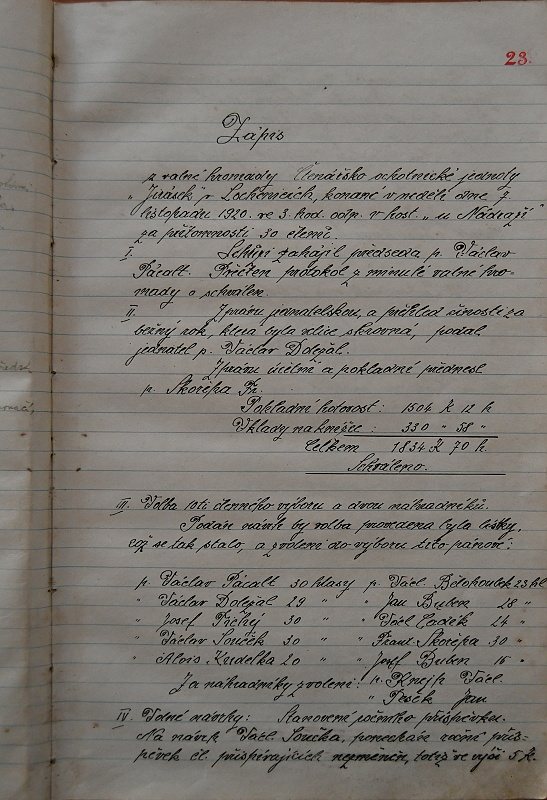 23.
Zápis
z valné hromady Čtenářsko ochotnické jednoty
"Jirásek" v Lochenicích, konané v neděli dne 7.
listopadu 1920. ve 3. hod. odp. v host. "u Nádraží"
za přítomnosti 30 členů.
I. Schůzi zahájil předseda p. Václav
Pácalt. Přečten protokol z minulé valné hro-
mady a schválen.
II. Zprávu jednatelskou, a přehled činnosti za
běžný rok, která byla velice skrovná, podal
jednatel p. Václav Doležal.
Zprávu účetní a pokladní přednesl
p. Skořepa Fr.
Pokladní hotovost: 1504 K 12 h
Vklady na knížce: 330 " 58 "
Celkem 1834 K 70 h.
Schváleno.
III. Volba 10ti členného výboru a dvou náhradníků.
Podán návrh by volba provedena byla lístky,
což se tak stalo, a zvoleni do výboru tito pánové:
p. Václav Pácalt 30 hlasy p. Václ. Bělohoubek 23 hl
" Václav Doležal 29 " " Jan Buben 28 "
" Josef Tichý 30 " " Václ. Laděk 24 "
" Václav Souček 30 " " Frant. Skořepa 30 "
" Alois Kudelka 20 " " Josef Buben 15 "
Za náhradníky zvoleni: p. Knejp Václ.
" Jan
IV. Volné návrhy: Stanovení ročního příspěvku.
Na návrh Václ. Součka, ponechán roční přís-
pěvek čl. přispívajících nezměněn, totiž ve výši 5 K.